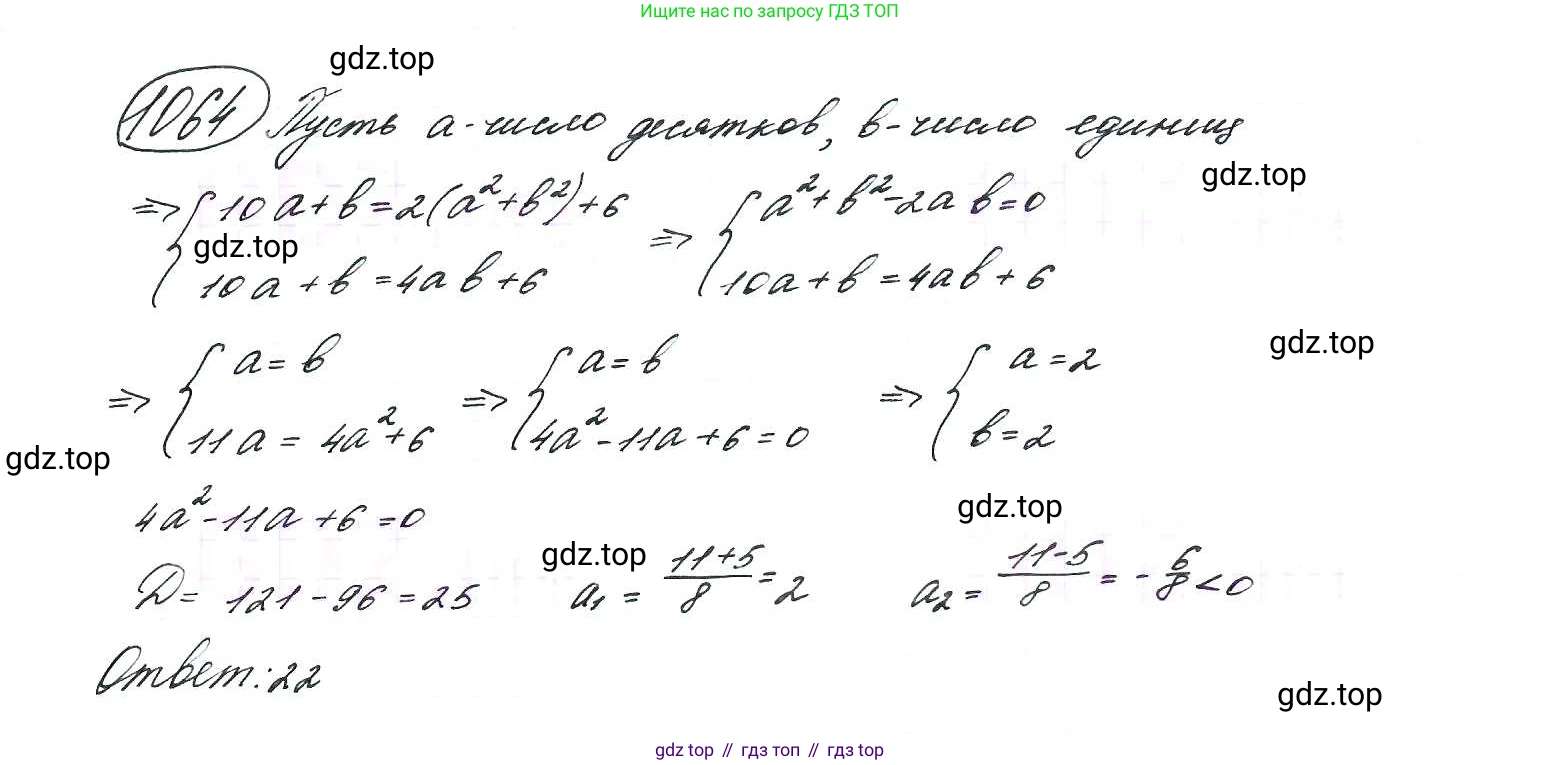 Ищите нас по запросу ГДЗ ТОП
gdz.top
1064 Пусть a - число десятков, b - число единиц
gdz.top
⇒ { 10a + b = 2(a² + b²) + 6 ⇒ { a² + b² - 2ab = 0
gdz.top
10a + b = 4ab + 6 10a + b = 4ab + 6
gdz.top
⇒ { a = b ⇒ { a = b ⇒ { a = 2
11a = 4a² + 6 4a² - 11a + 6 = 0 b = 2
gdz.top
4a² - 11a + 6 = 0
gdz.top
gdz.top
D = 121 - 96 = 25 a₁ = (11+5)/8 = 2 a₂ = (11-5)/8 = - 6/8 < 0
Ответ: 22
gdz.top
gdz top // гдз топ // гдз top